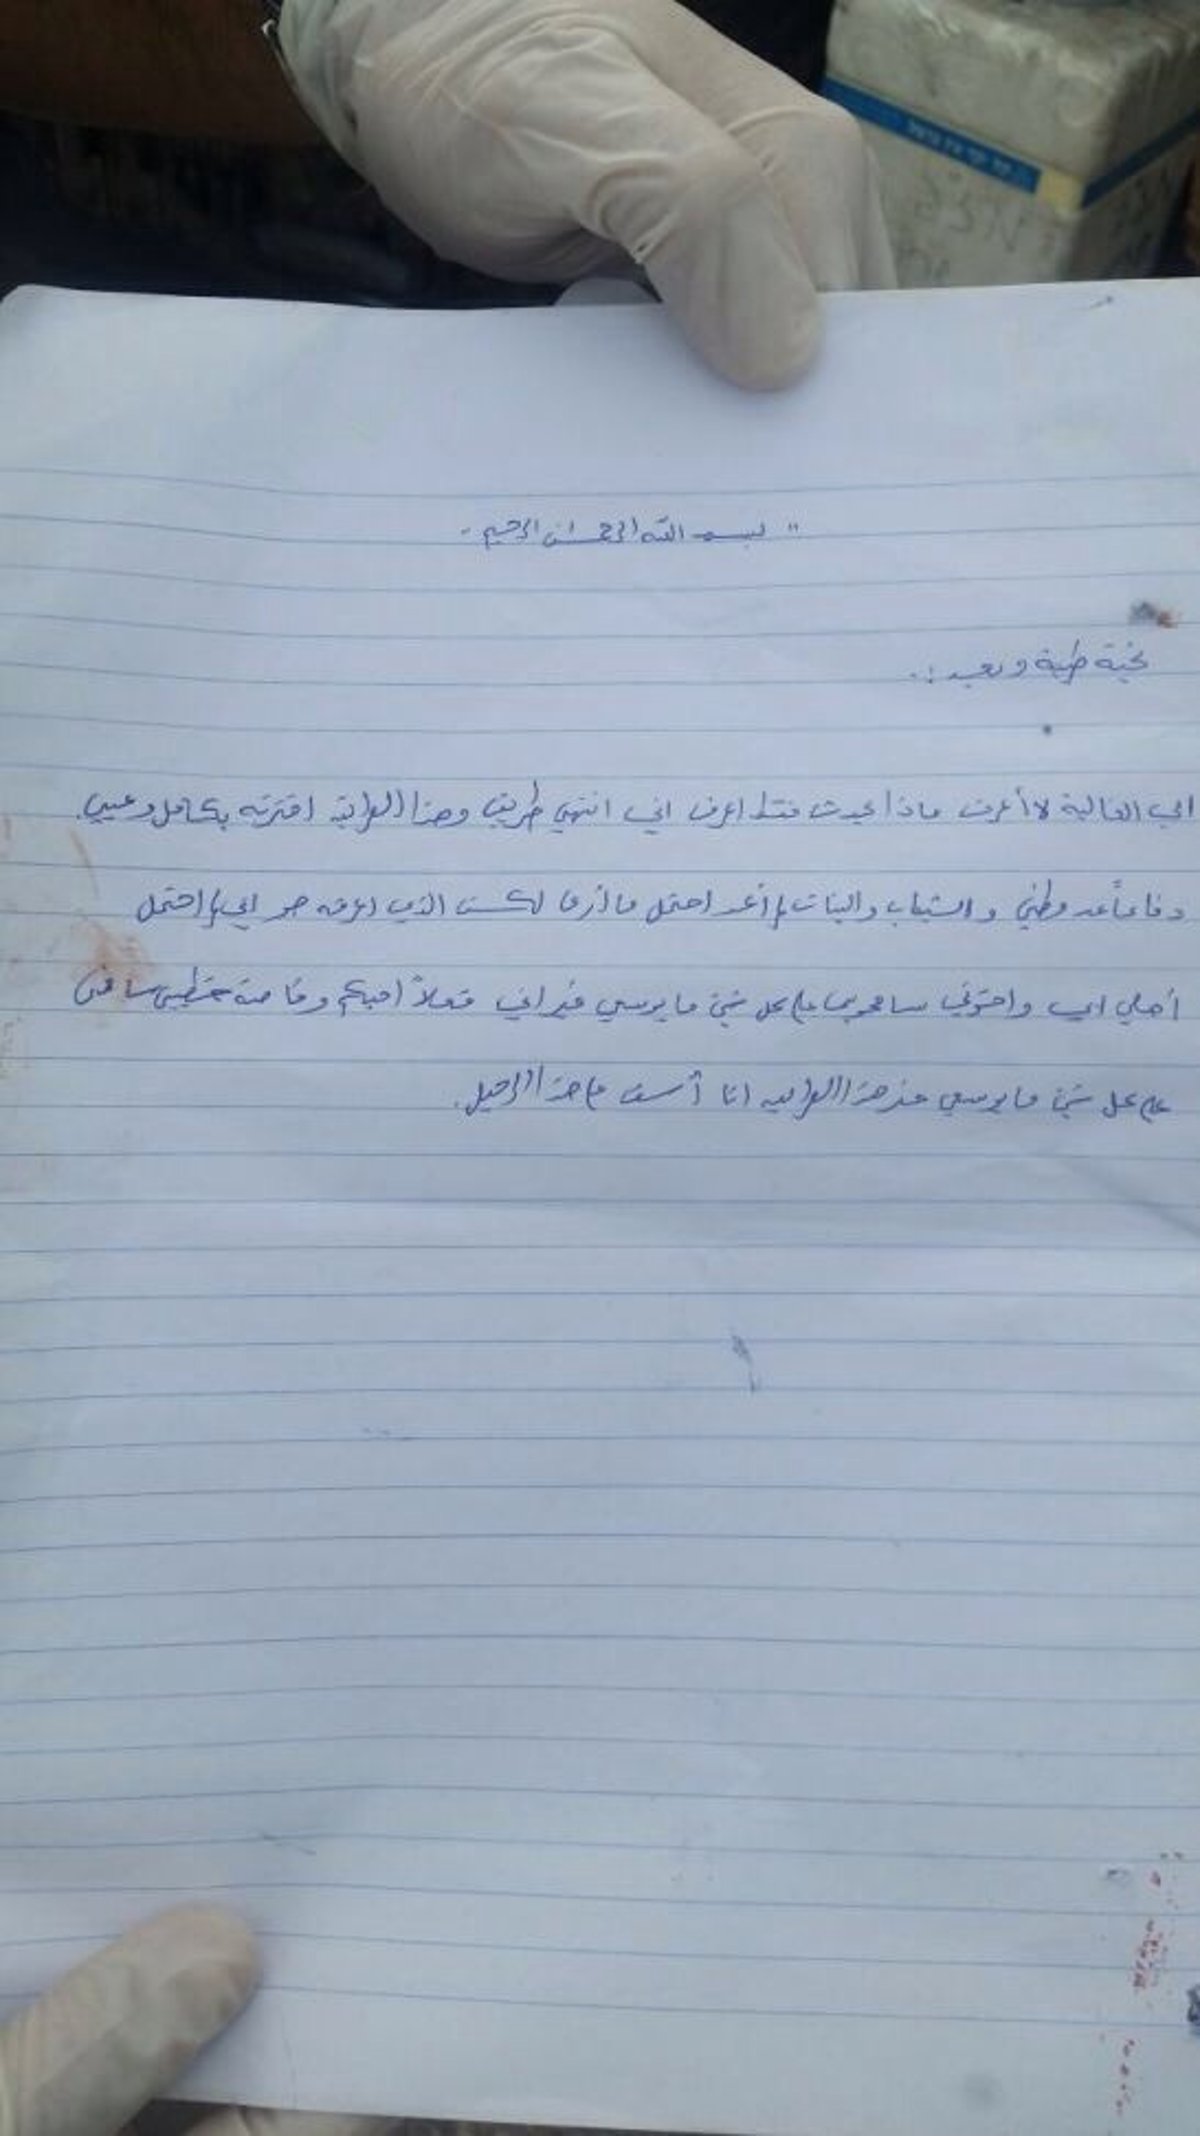 " بسم الله الرحمن الرحيم "
تحية طيبة وبعد :.
امي الغالية لا أعرف ماذا يحدث فقط اعرف اني انتهى طريق وهذا الطريق اخترته بكامل وعيي.
دفاعاً عن وطني والشباب والبنات لم أعد احتمل ما أرى لكن الذي اعرفه هو اني لم احتمل
أهلي امي واخوتي سامحوني على كل شيء ما بوسعي غير اني فعلاً احبكم وخاصة خطيبي سامحني
على كل شيء ما بوسعي هذا الطريق انا آسف ع هذا الرحيل.